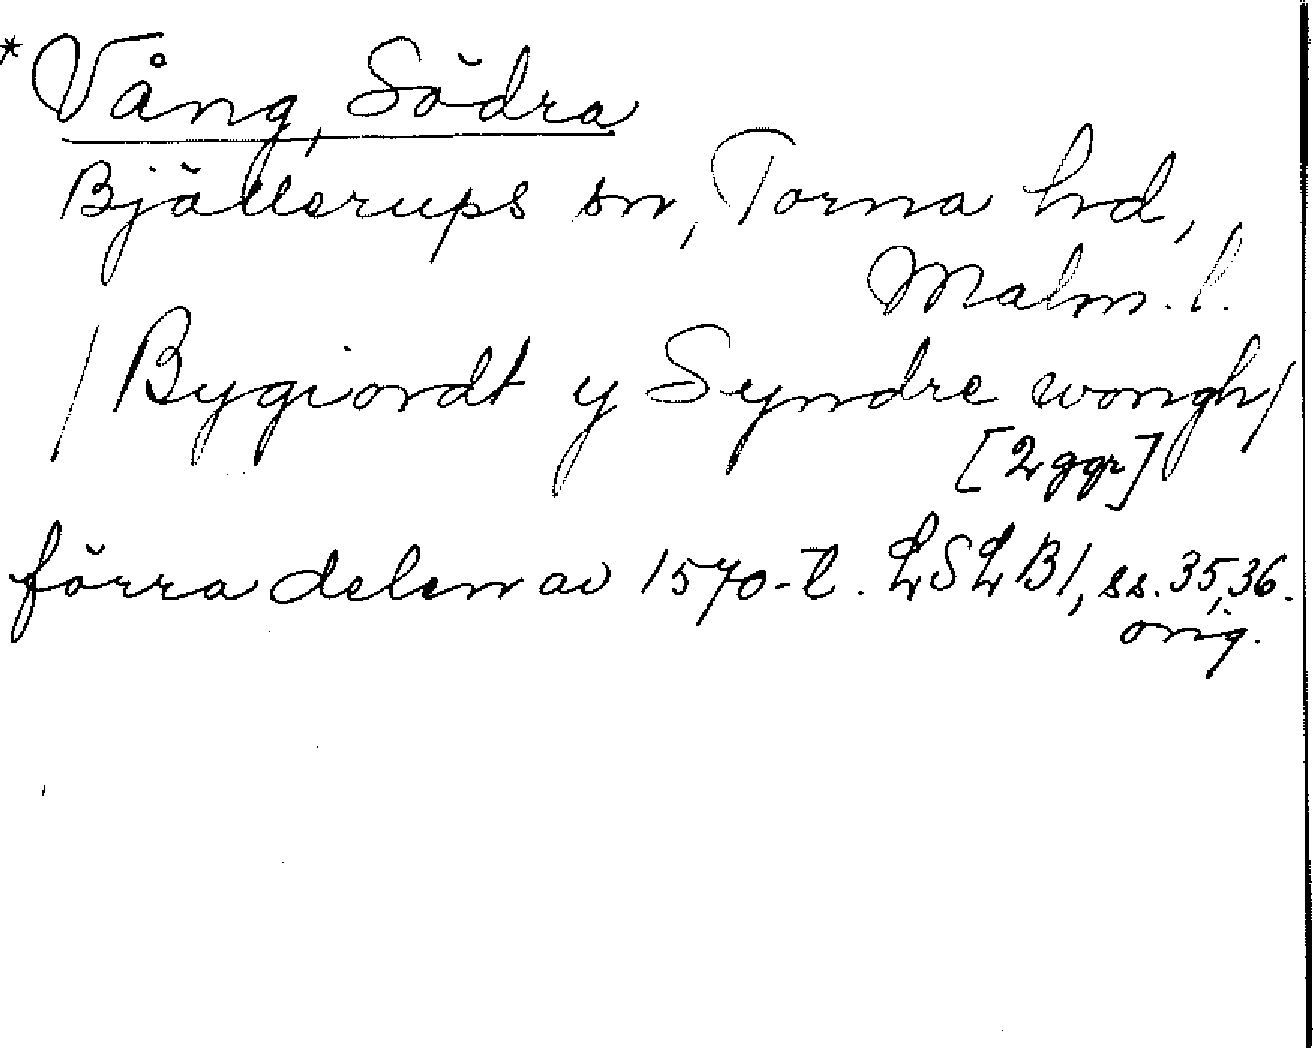 * Vång, Södra
Bjällerups sn, Torna hd,
Malm. l.
/ Bygiordt y Syndre wongh /
[2 ggr]
förra delen av 1570-t. LSLB1, ss. 35, 36.
orig.